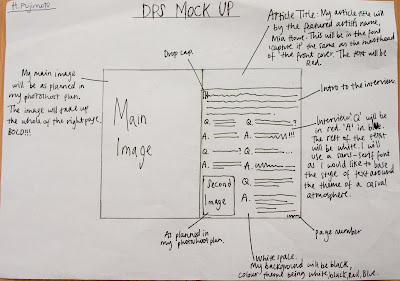 H. Fujimoto
DPS MOCK UP
Article Title: My article title will
by the featured artist's name,
Mia Howe. This will be in the font
'capture it' the same as the masthead
of the front cover. The text will be
Red.
Drop cap.
My main image
will be as planned in
my photoshoot plan.
The image will take up
the whole of the right page.
BOLD!!!
Main
Image
Intro to the interview.
Q. ?
A. !!!
Q.
A.
Q.
A.
Q.
A.
Q.
A.
Q.
A.
Interview: 'Q' will be
in red. 'A' in blue.
The rest of the text
will be white. I will
use a sans-serif font
as I would like to base
the style of text around
the theme of a casual
atmosphere.
Second
Image
As planned in
my photoshoot plan.
page number
White space.
My background will be black,
colour theme being white, black, red, blue.